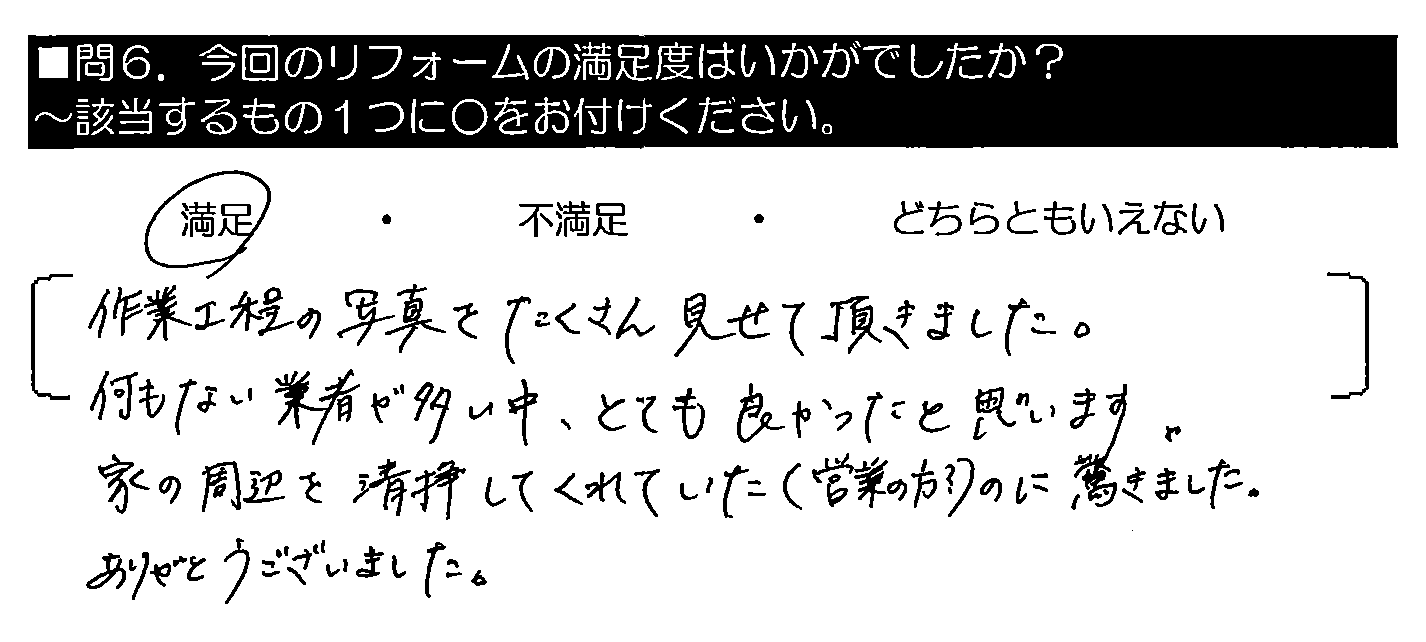 ■問6．今回のリフォームの満足度はいかがでしたか？
～該当するもの１つに○をお付けください。
満足 ・ 不満足 ・ どちらともいえない
作業工程の写真をたくさん見せて頂きました。
何もない業者が多い中、とても良かったと思います。
家の周辺を清掃してくれていた（営業の方？）のに驚きました。
ありがとうございました。